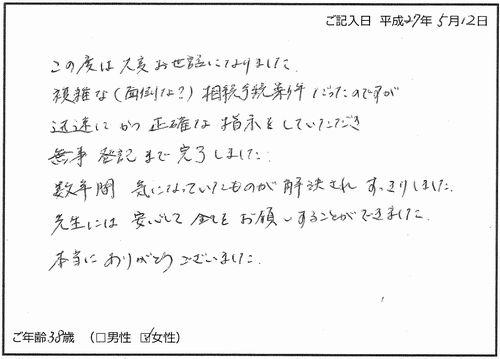 ご記入日 平成27年 5月12日
この度は大変お世話になりました.
複雑な(面倒な?)相続手続案件だったのですが
迅速にかつ正確な指示をしていただき
無事 登記まで完了しました.
数年間 気になっていたものが解決され すっきりしました.
先生には 安心して 全てを お願いすることができました.
本当にありがとうございました.
ご年齢38歳 (□男性 ☑女性)